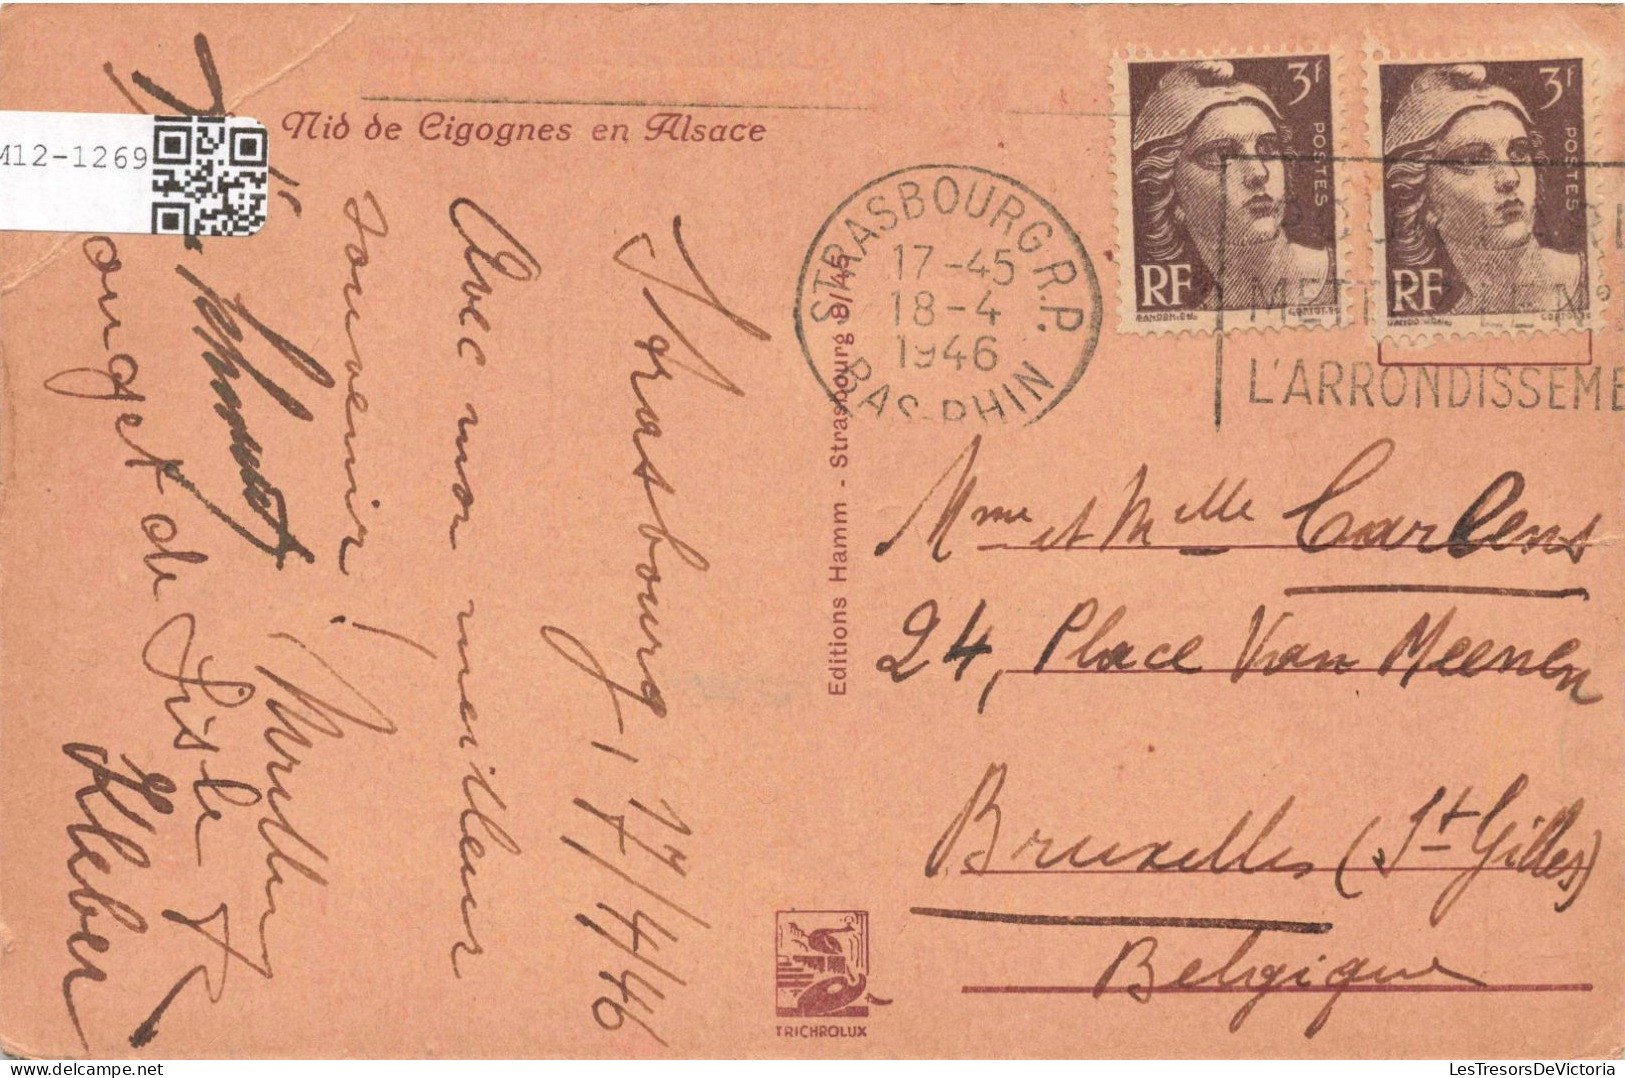 M12-1269
Nid de Cigognes en Alsace
Strasbourg, 17/4/46
Avec mon meilleur
souvenir!
Rouget de Lisle
Kléber
Editions Hamm - Strasbourg 8/45
TRICHROLUX
STRASBOURG R.P.
17-45
18-4
1946
BAS-RHIN
3F
POSTES
RF
GANDON.DEL.
3F
POSTES
RF
METTEZ LE N°
L'ARRONDISSEME
Mme et Mlle Carlens
24, Place Van Meenen
Bruxelles (St Gilles)
Belgique
LesTresorsDeVictoria